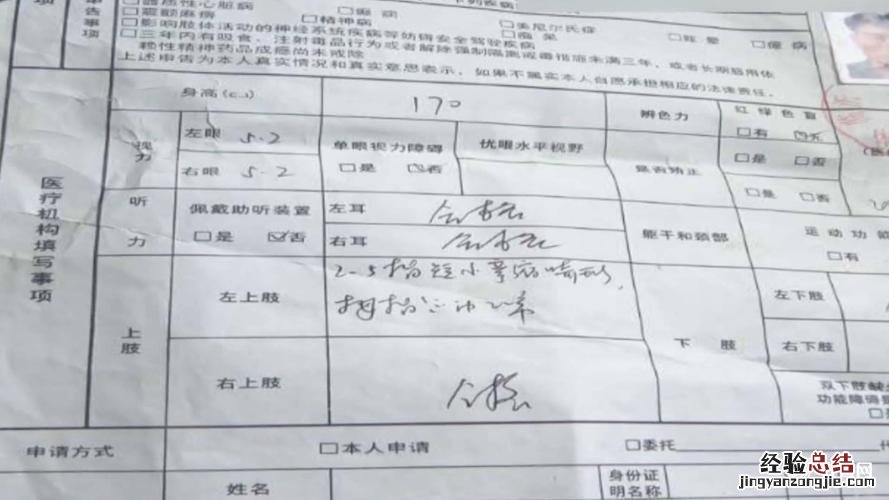 下列疾病
器质性心脏病 □癫痫 □美尼尔氏症 □眩晕 □癔病
□震颤麻痹 □精神病 □痴呆
□影响肢体活动的神经系统疾病等妨碍安全驾驶疾病
□三年内有吸食、注射毒品行为或者解除强制隔离戒毒措施未满三年，或者长期服用依
赖性精神药品成瘾尚未戒除
上述申告为本人真实情况和真实意思表示，如果不属实本人自愿承担相应的法律责任。
医疗机构填写事项
身高(cm) 170 辨色力 红绿色盲
□有 ☑无
视力 左眼 5.2 单眼视力障碍 优眼水平视野
□是 ☑否
右眼 5.2 是否矫正 □是 □否
□是 □否
听力 佩戴助听装置 左耳 合格
□是 ☑否 右耳 合格
躯干和颈部 运动功能
□有
上肢 左上肢 2-5指短小 畸形，
拇指
右上肢 合格
下肢 左下肢
右下肢
双下肢缺
功能障碍
申请方式 □本人申请 □委托
姓名 身份证
明名称
经验总结
jingyanzongjie.com